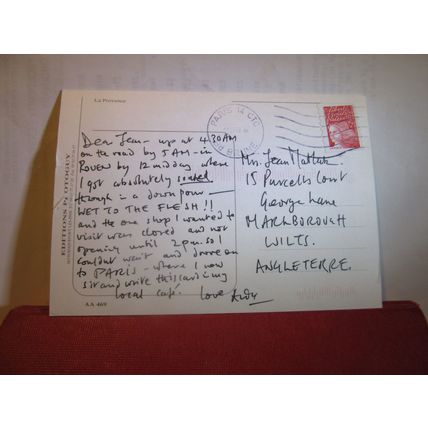 La Provence
Dear Jean - up at 4.30AM
on the road by 5AM - in
ROUEN by 12 midday where
I got absolutely soaked
through in a down pour -
WET TO THE FLESH!!
and the one shop I wanted to
visit was closed and not
opening until 2pm. so I
couldnt wait and drove on
to PARIS - where I now
sit and write this card in my
local café. Love
PARIS 14 CTC
Mrs. Jean
15 Purcells Court
George Lane
MARLBOROUGH
WILTS.
ANGLETERRE.
EDITIONS D'ART
AA 469